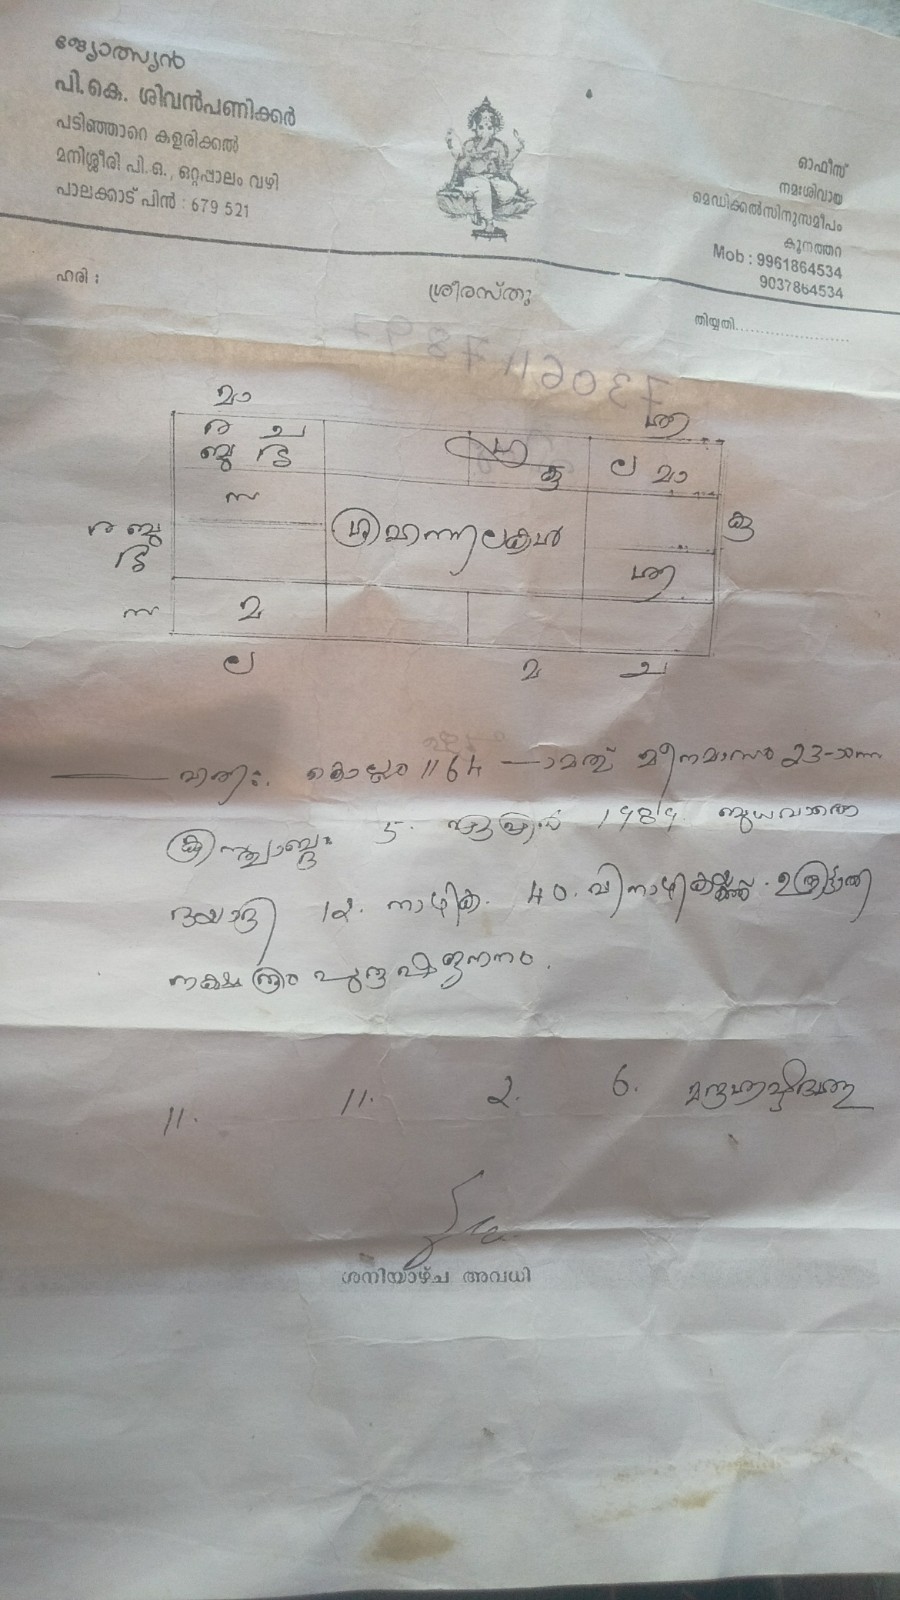 ജ്യോത്സ്യൻ
പി.കെ. ശിവൻപണിക്കർ
പടിഞ്ഞാറെ കളരിക്കൽ
മനിശ്ശീരി പി.ഒ., ഒറ്റപ്പാലം വഴി
പാലക്കാട് പിൻ : 679 521
ഓഫീസ്
നമഃശിവായ
മെഡിക്കൽസിനുസമീപം
കൂനത്തറ
Mob : 9961864534
9037864534
ഹരി :
ശ്രീരസ്തു
തിയ്യതി....................
മാ
ര ച
ബു
ല മാ
കു
സ
കു
ര ബു
സ
മ
ല
മ
ച
കൊല്ലം 1164 -ാമത് മീനമാസം 23-ാംന
ക്രിസ്ത്വാബ്ദം 5. ഏപ്രിൽ 1989. ബുധവാരെ
ഉദയാദി 12. നാഴിക. 40. വിനാഴികയ്ക്ക് ഉത്രട്ടാതി
നക്ഷത്രം പുരുഷജനനം.
11. 11. 2. 6.
ശനിയാഴ്ച അവധി